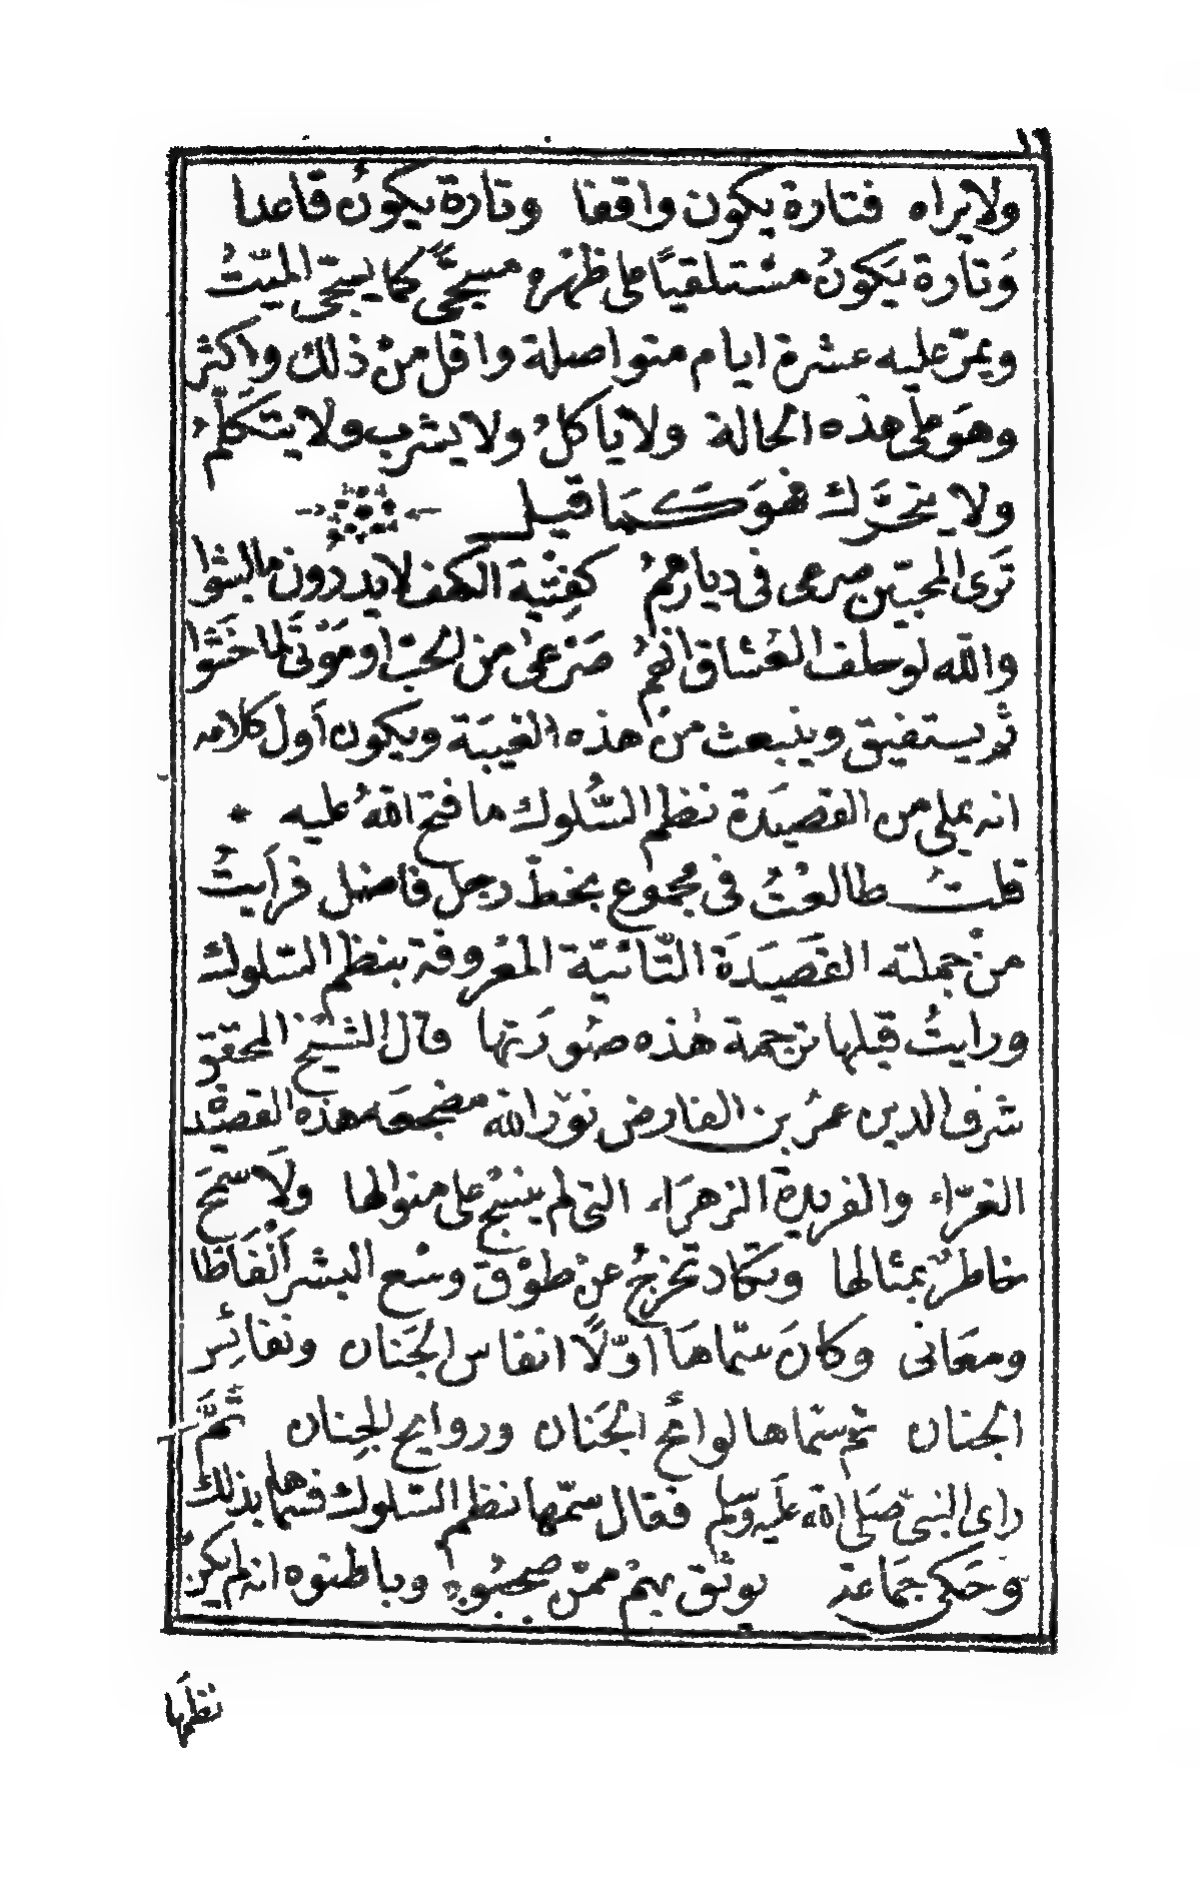 ولا يراه فتارة يكون واقفا وتارة يكونُ قاعدا
وَتارة يَكونُ مستلقيًا على ظهره مسجًّى كما يسجى الميّتُ
ويمرّ عليه عشرة ايام متواصلة واقل منْ ذلك واكثر
وهوَ على هذه الحالة ولا ياكلُ ولا يشرب ولا يتكَلّمُ
ولا يتحَرّك فهوَ كَمَا قيل
تَرَى المحبّين صرعى فى ديارهمُ كفِتْيَة الكهف لا يدرون ما لبثوا
والله لو حلف العُشاق انهمُ صَرْعىٰ من الحُبّ او مَوْتَى لما حَنَثوا
ثُم يستفيق وينبعث منْ هذه الغيبَة ويكون أول كلامه
انه يملى من القصيَدة نظم السُّلوك ما فتح اللهُ عليه
قلتُ طالعْتُ فى مُجموع بخطّ رجل فاضل فرأيتُ
منْ جملته القَصيَدَة التّائيّة المعْروفة بنظم السّلوك
ورايتُ قبلها ترجمة هٰذه صُورَتها قال الشّيْخ المحقق
شرف الدين عمرُ بن الفارض نوّر الله مضجعَه هذه القصيْدة
الغرّاء والفريدة الزهرَاء التى لم ينسج على منوالها ولَا سمَحَ
خاطرٌ بمثالها وتكاد تخرُجُ عنْ طوْق وسُع البشر أَلْفَاظا
ومعَانى وكانَ سَمّاهَا أوّلًا انفاس الجَنان ونفائِس
الجنان ثم سَمّاها لوائح الجَنان وروايح الجِنان ثُمَّ
راى النبىّ صَلى الله عَليه وسلم فقال سمّها نظم السّلوك فسَماها بذلك
وَحَكى جَماعة يوثَق بهمْ ممّن صحبُوه وباطنوه انه لم يكنْ
نظمَها